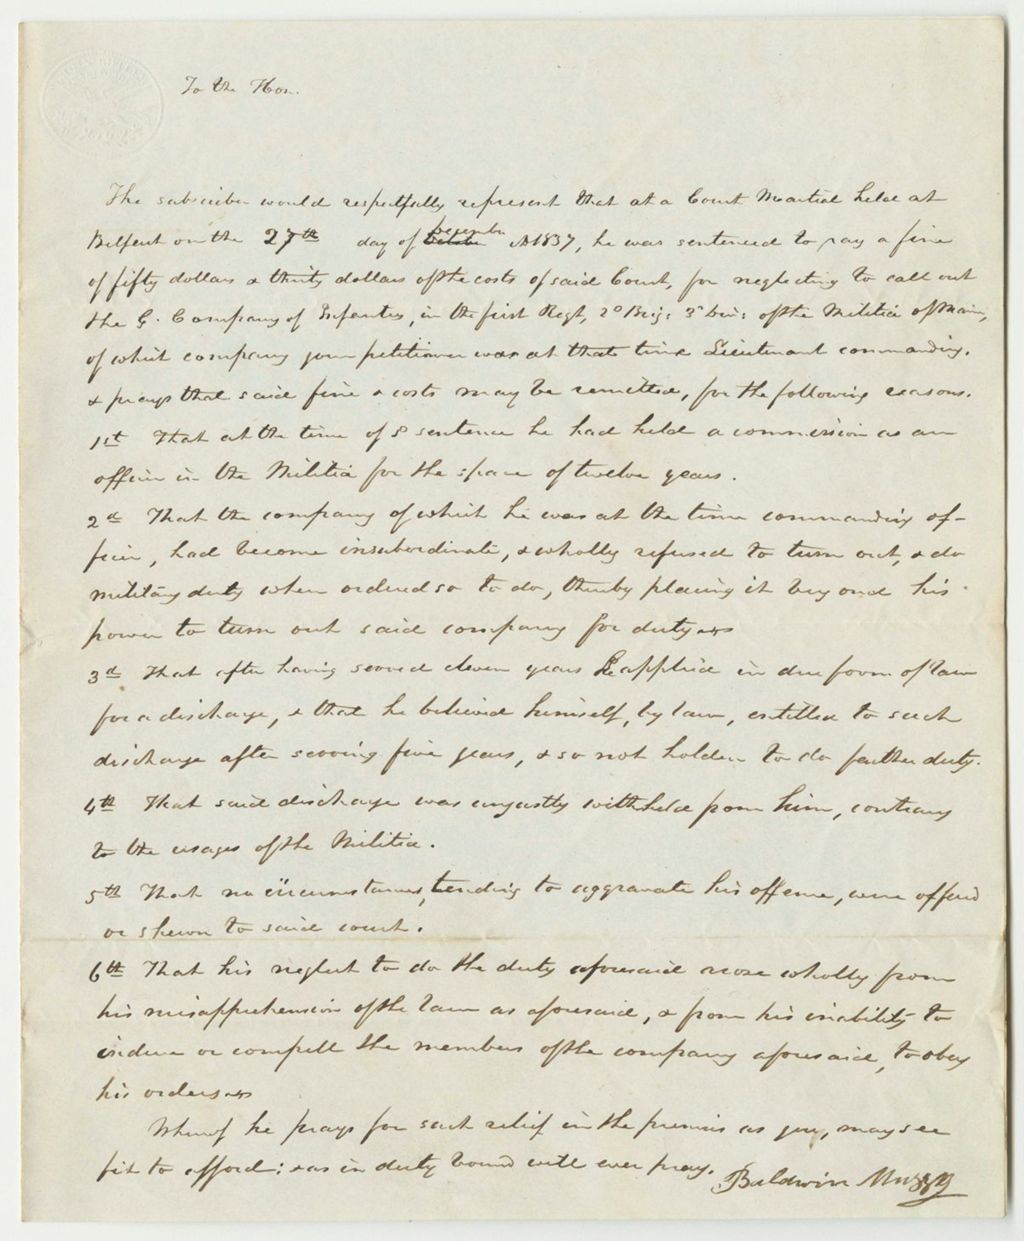 To the Hon.
The subscriber would respectfully represent that at a Court Martial held at
Belfast on the 27th day of December A1837, he was sentenced to pay a fine
of fifty dollars & thirty dollars of the costs of said Court, for neglecting to call out
the G. Company of Infantry, in the first Regt, 2d Brig: 3d Div: of the Militia of Maine,
of which company your petitioner was at that time Lieutenant commanding,
& prays that said fine & costs may be remitted, for the following reasons.
1st That at the time of sd sentence he had held a commission as an
officer in the Militia for the space of twelve years.
2d That the company of which he was at the time commanding of-
ficer, had become insubordinate, & wholly refused to turn out, & do
military duty when ordered so to do, thereby placing it beyond his
power to turn out said company for duty
3d That after having served eleven years he applied in due form of law
for a discharge, & that he believed himself, by law, entitled to such
discharge after serving five years, & so not holden to do further duty.
4th That said discharge was unjustly withheld from him, contrary
to the usages of the Militia.
5th That no circumstances, tending to aggravate his offense, were offered
or shewn to said court.
6th That his neglect to do the duty aforesaid arose wholly from
his misapprehension of the law as aforesaid, & from his inability to
induce or compell the members of the company aforesaid, to obey
his orders
Whereof he prays for such relief in the premises as you, may see
fit to afford: & as in duty bound will ever pray.
Baldwin Muzzy